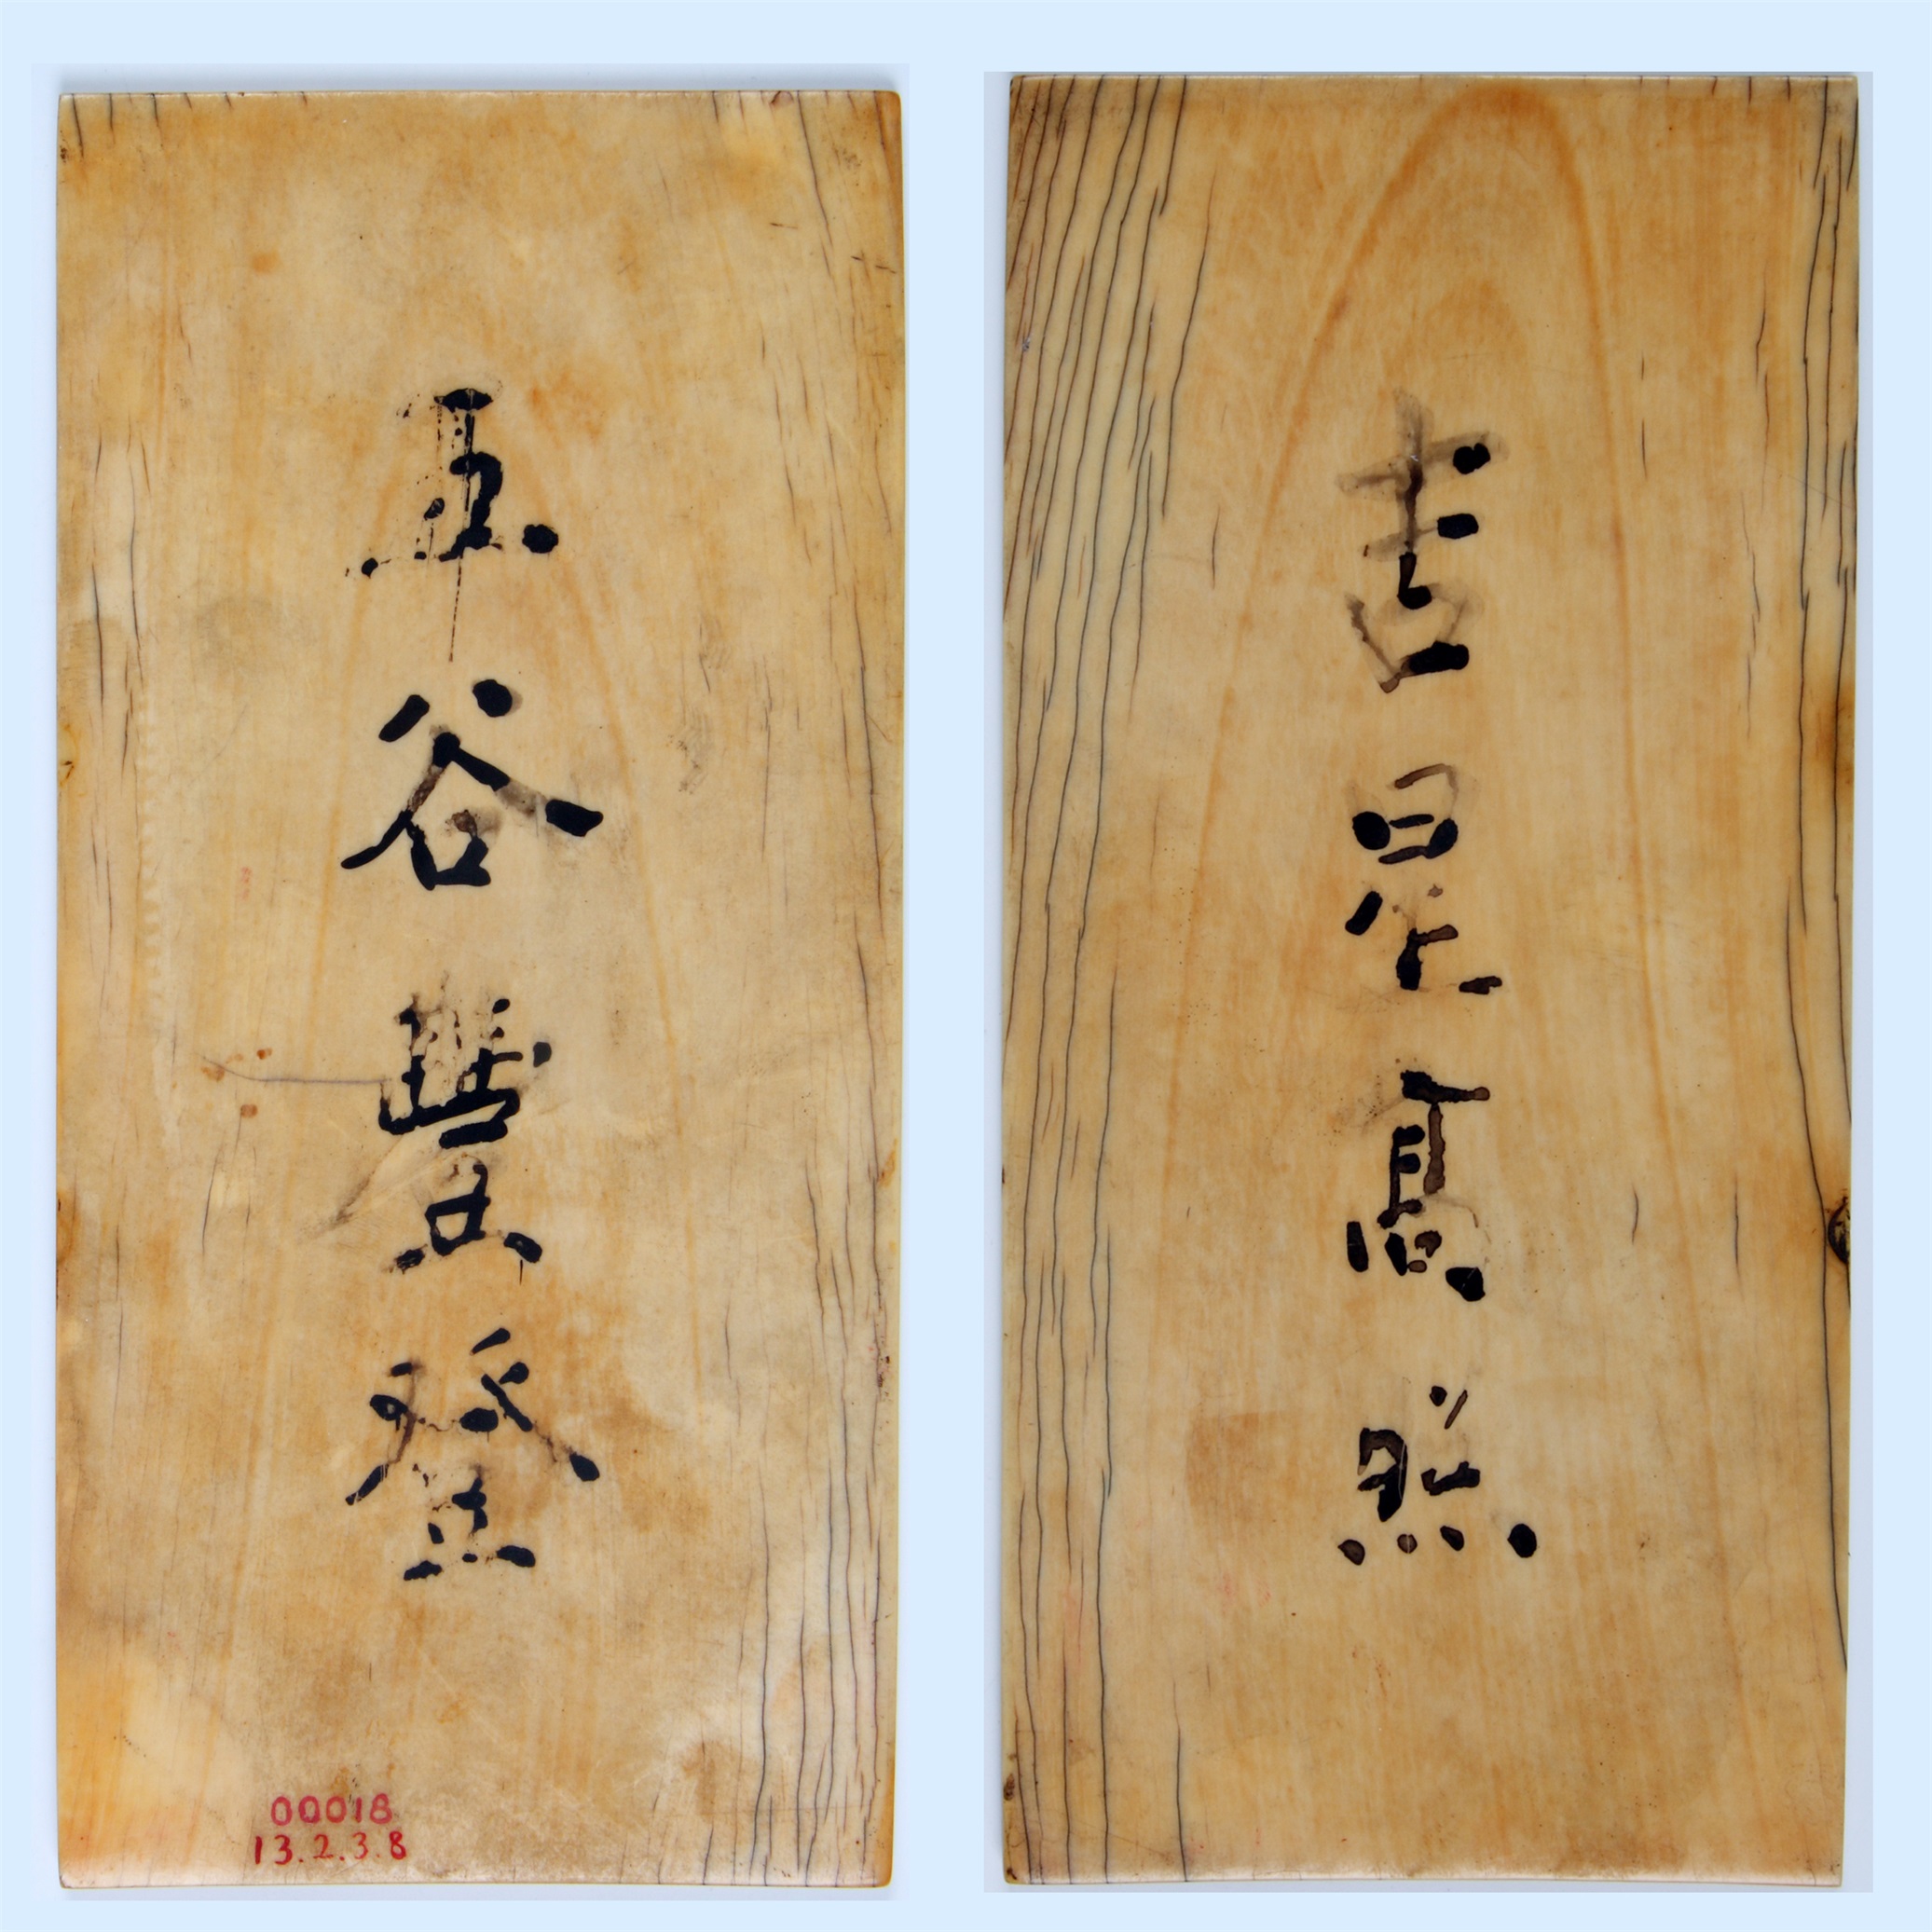 五谷豐登
00018
13.2.3.8
吉星高照